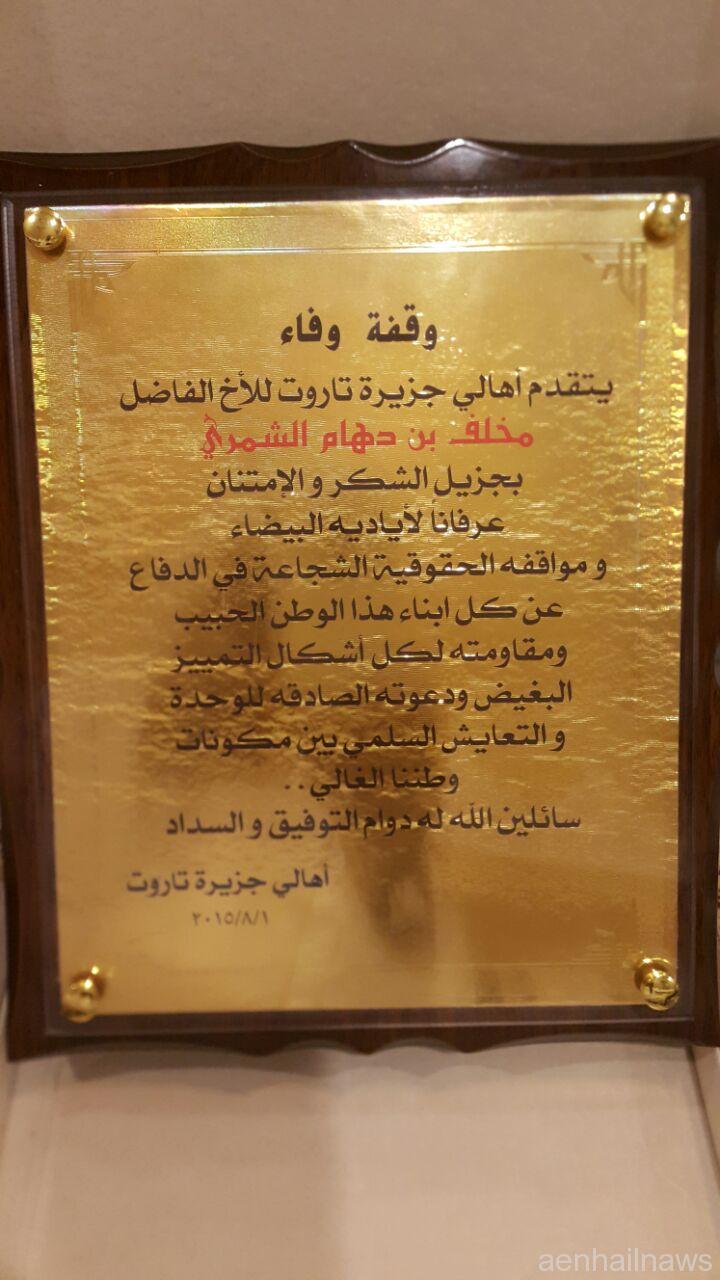 وقفة وفاء
يتقدم أهالي جزيرة تاروت للأخ الفاضل
مخلف بن دهام الشمري
بجزيل الشكر و الإمتنان
عرفاناً لأياديه البيضاء
و مواقفه الحقوقية الشجاعة في الدفاع
عن كل ابناء هذا الوطن الحبيب
ومقاومته لكل أشكال التمييز
البغيض ودعوته الصادقه للوحدة
و التعايش السلمي بين مكونات
وطننا الغالي..
سائلين الله له دوام التوفيق و السداد
أهالي جزيرة تاروت
٢٠١٥/٨/١
aenhailnaws